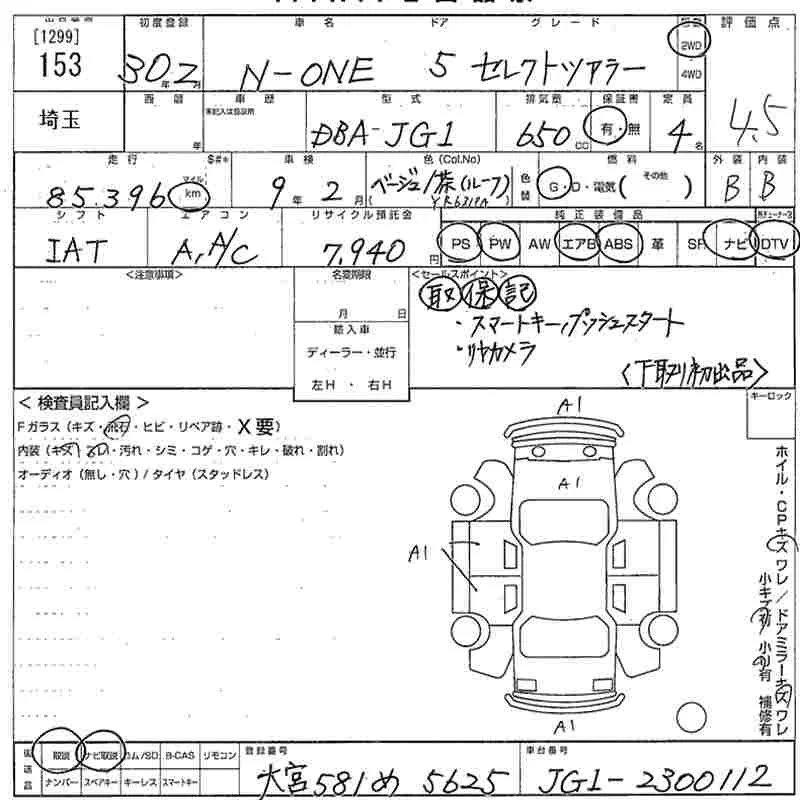 [1299]
初度登録 車名 ドア グレード 評価点
153 30年2月 N-ONE 5 セレクトツアラー 2WD 4WD 4.5
埼玉 西暦 年 車歴 未記入は自家用 型式 DBA-JG1 排気量 650cc 保証書 有・無 定員 4名
走行 85,396 マイル km 車検 9年2月 色(Col.No) ベージュ/茶(ルーフ) 色替 燃料 G・D・電気( その他 ) 外装 B 内装 B
シフト IAT エアコン A,A/C リサイクル預託金 7,940円 純正装備品 PS PW AW エアB ABS 革 SR ナビ DTV
<注意事項> 名変期限 月 日 <セールスポイント>
取 保 記
・スマートキー,プッシュスタート
・リヤカメラ
<下取り初出品>
輸入車
ディーラー・並行
左H ・ 右H
キーロック
< 検査員記入欄 >
Fガラス (キズ・飛石・ヒビ・リペア跡・X要)
内装 (キズ・スレ・汚れ・シミ・コゲ・穴・キレ・破れ・割れ)
オーディオ (無し・穴) / タイヤ (スタッドレス)
A1
A1
A1
A1
ホイル・CPキズワレ/ドアミラーキズワレ
小キズ有 小凹有 補修有
後送品 取説 ナビ取説 ロム/SD B-CAS リモコン
ナンバー スペアキー キーレス スマートキー
登録番号 大宮 581 め 5625
車台番号 JG1-2300112